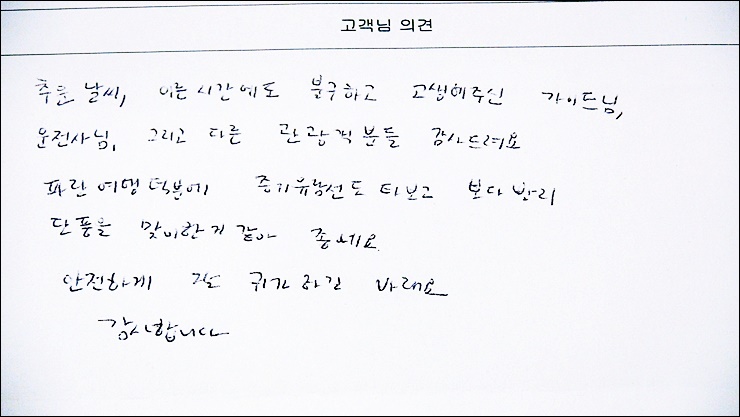 고객님 의견
추운 날씨, 이른 시간에도 불구하고 고생해주신 가이드님,
운전사님, 그리고 다른 관광객분들 감사드려요
파란여행 덕분에 증기유람선도 타보고 보다 빨리
단풍을 맞이한거 같아 좋네요
안전하게 잘 귀가하길 바래요
감사합니다